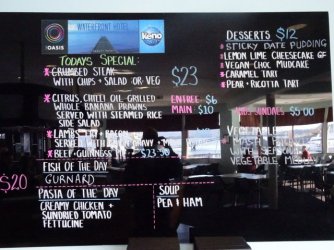 OASIS
WATERFRONT HOTEL
Keno
TODAYS SPECIAL:
CRUMBED STEAK
WITH CHIPS + SALAD OR VEG
$23
CITRUS, CHILLI OIL GRILLED
WHOLE BANANA PRAWNS
SERVED WITH STEAMED RICE
SIDE SALAD
ENTREE $6
MAIN $10
LAMBS FRY + BACON
SERVED WITH GRAVY
BEEF GUINNESS PIE $23.90
FISH OF THE DAY
GURNARD
$20
PASTA OF THE DAY
CREAMY CHICKEN +
SUNDRIED TOMATO
FETTUCINE
SOUP
PEA + HAM
DESSERTS $12
STICKY DATE PUDDING
LEMON LIME CHEESECAKE GF
VEGAN CHOC MUDCAKE
CARAMEL TART
PEAR + RICOTTA TART
KIDS SUNDAES $5.00
VEGETABLE
VEGETABLE MEDLEY